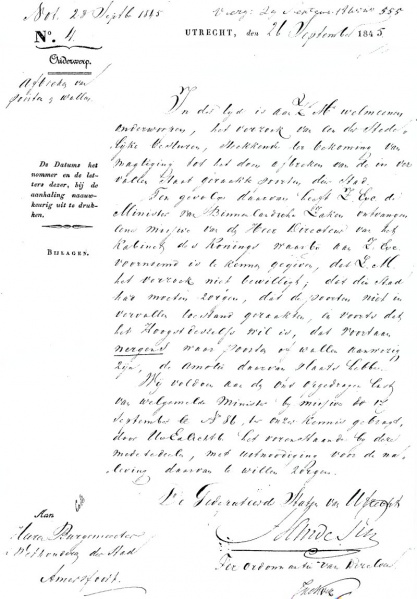 Not. 28 Septb 1845
N°. 4.
UTRECHT, den 26 September 1845
Onderwerp.
Afbreken van
poorten & wallen
De Datums het
nommer en de let-
ters dezer, bij de
aanhaling naauw-
keurig uit te druk-
ken.
BIJLAGEN.
In der tijd is aan Z. M. welmeenen
onderworpen, het verzoek van een der Stede-
lijke besturen, strekkende ter bekoming van
magtiging tot het doen afbreken van de in ver-
vallen staat geraakte poorten der Stad.
Ten gevolge daarvan heeft Z. Exc. de
Minister van Binnenlandsche Zaken ontvangen
eene missive van de Heer Directeur van het
Kabinet des Konings waarbij aan Z. Exc.
voornoemd is te kennen gegeven, dat Z. M.
het verzoek niet bewilligt; dat die Stad
had moeten zorgen, dat de poorten niet in
vervallen toestand geraakten, en voorts dat
het Hoogstdeszelfs wil is, dat voortaan
nergens waar poorten of wallen aanwezig
zijn, de amotie daarvan plaats hebbe.
Wij voldoen aan de ons opgedragen last
van welgemelde Minister bij missive van
September N°. 86, ter onzer kennis gebragt,
door UwEdAchtb. het vorenstaande bij deze
mede te deelen, met uitnoodiging voor de na-
leving daarvan te willen zorgen.
De Gedeputeerde Staten van Utrecht
Ter ordonnantie van dezelve
Aan
Heeren Burgemeester en
Wethouders der Stad
Amersfoort